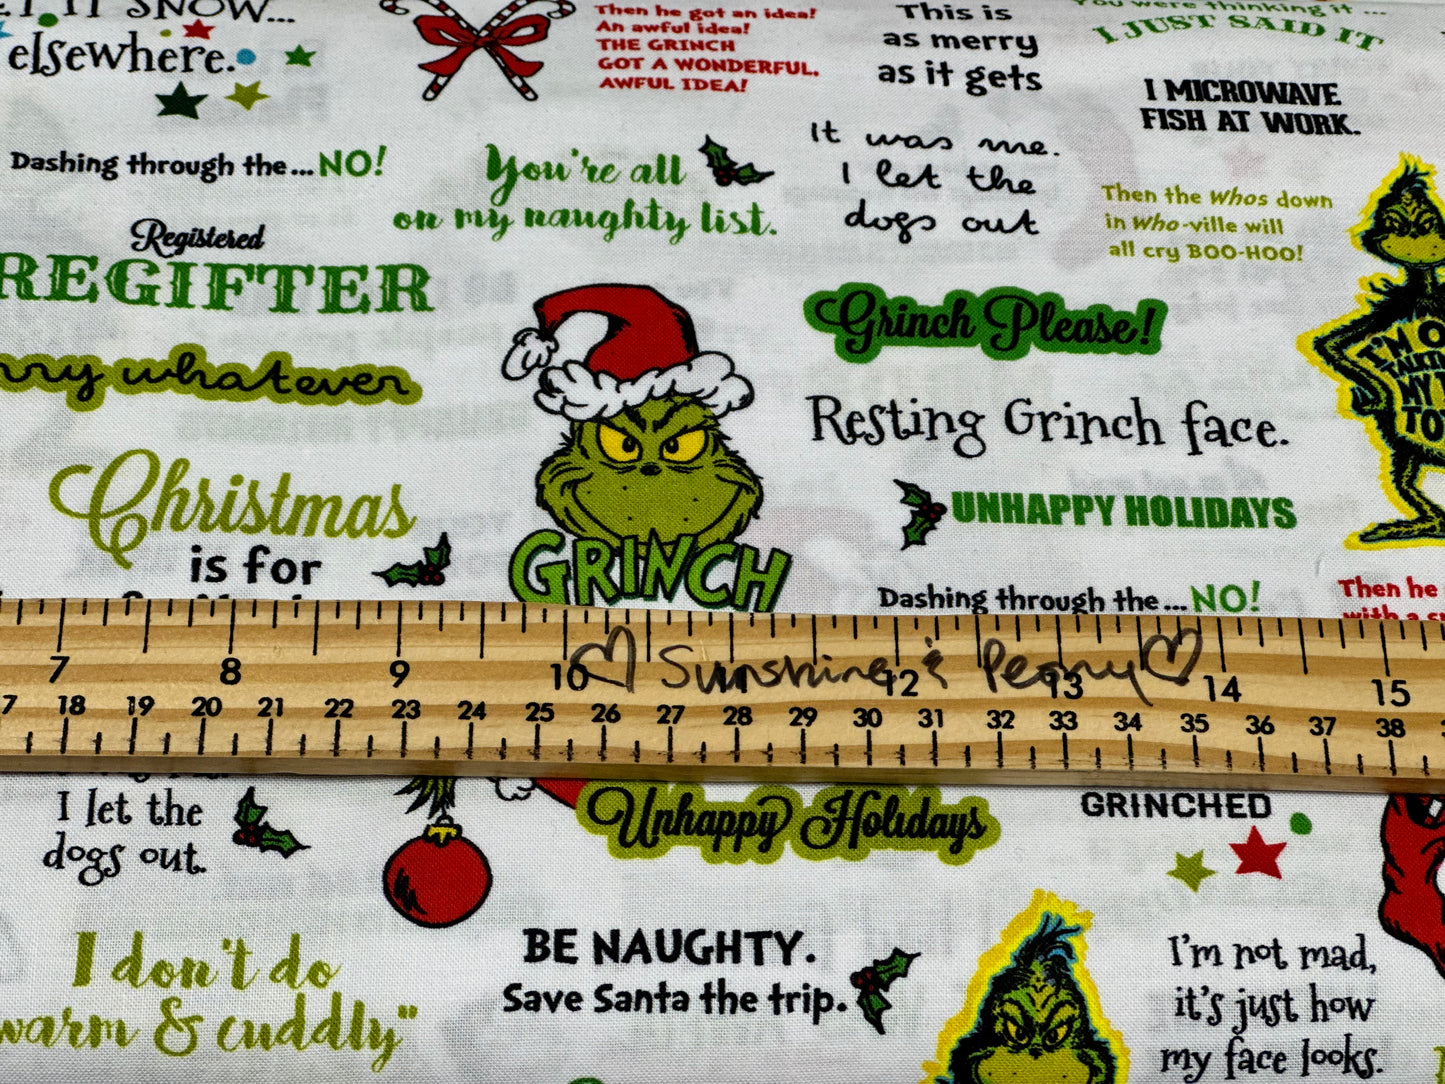 IT SNOW...
elsewhere.
Then he got an idea!
An awful idea!
THE GRINCH
GOT A WONDERFUL.
AWFUL IDEA!
This is
as merry
as it gets
You were thinking it ...
I JUST SAID IT
I MICROWAVE
FISH AT WORK.
Dashing through the... NO!
You're all
on my naughty list.
It was me.
I let the
dogs out
Then the Whos down
in Who-ville will
all cry BOO-HOO!
Registered
REGIFTER
whatever
Grinch Please!
I'M
MY
TO
Resting Grinch face.
Christmas
is for
GRINCH
UNHAPPY HOLIDAYS
Dashing through the... NO!
Then he
with a
7 8 9 10 11 12 13 14 15
Sunshine & Peony
17 18 19 20 21 22 23 24 25 26 27 28 29 30 31 32 33 34 35 36 37 38
I let the
dogs out.
Unhappy Holidays
GRINCHED
I don't do
warm & cuddly"
BE NAUGHTY.
Save Santa the trip.
I'm not mad,
it's just how
my face looks.